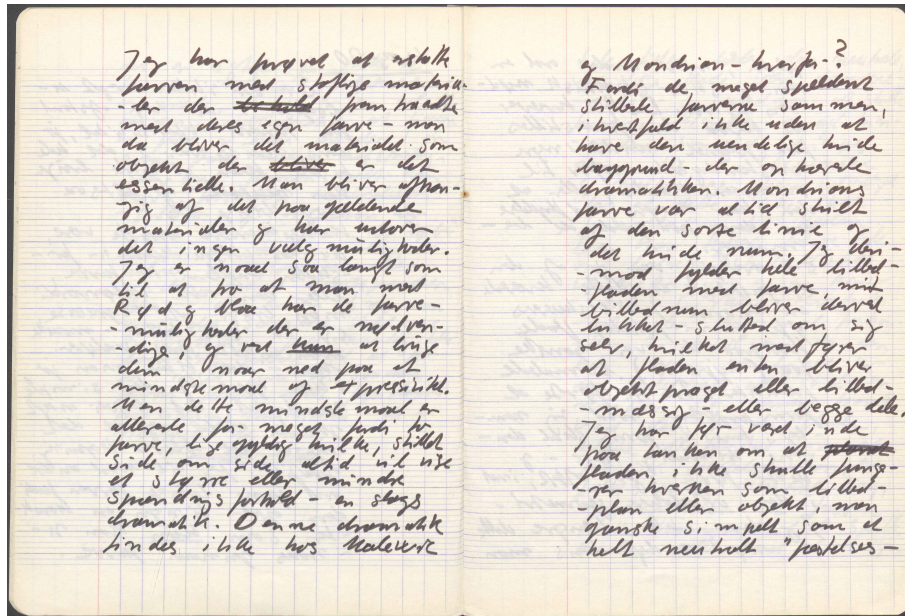 Jeg har prøvet at erstatte
farven med stoflige materia-
-ler der be hold fremtraadte
med deres egen farve - men
da bliver det materialet som
objekt der bliver er det
essentielle. Man bliver afhæn-
gig af det paagældende
materiale og har udover
det ingen valgmuligheder.
Jeg er naaet saa langt som
til at se at man med
Rød og blaa har de farve-
-muligheder der er nødven-
-dige, og ved kun at bruge
dem naar ned paa et
mindstemaal af expressivitet.
Men dette mindstemaal er
allerede for meget fordi to
farver, ligegyldig hvilke, stillet
side om side altid vil vise
et større eller mindre
spændingsforhold - en slags
dramatik. Denne dramatik
findes ikke hos Malevich
og Mondrian - hvorfor - ?
Fordi de, meget sjældent
stillede farverne sammen,
i hvertfald ikke uden at
have den uendelige hvide
baggrund - der ophævede
dramatikken. Mondrians
farve var altid skilt
af den sorte linie og
det hvide rum. Jeg deri-
-mod fylder hele billed-
-fladen med farve, mit
billedrum bliver derved
lukket - sluttet om sig
selv, hvilket medfører
at fladen enten bliver
objektpræget eller billed-
-mæssig - eller begge dele.
Jeg har før været inde
paa tanken om, at planet
fladen ikke skulle funge-
-rer hverken som billed-
-plan eller objekt, men
ganske simpelt som et
helt neutralt "pastelses-